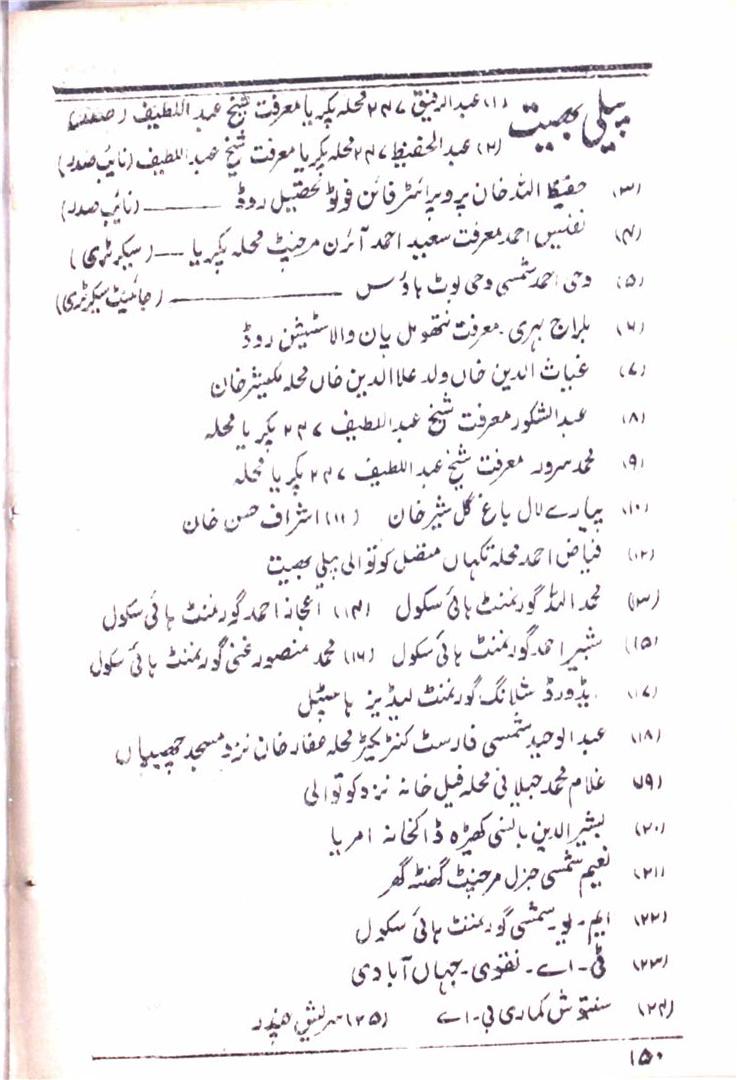 پیلی بھیت
(۱) عبدالرفیق ۲۴۷ محلہ پکریا معرفت شیخ عبداللطیف (صدر)
(۲) عبدالحفیظ ۲۴۷ محلہ پکریا معرفت شیخ عبداللطیف (نائب صدر)
(۳) حفیظ اللہ خان پروپرائٹر فائن فوٹو تحصیل روڈ ــــــ (نائب صدر)
(۴) نفیس احمد معرفت سعید احمد آئرن مرچنٹ محلہ پکریا ــــ (سیکرٹری)
(۵) وحی احمد شمسی وحی بوٹ ہاؤس ــــــــــ (جائنٹ سیکرٹری)
(۶) بلراج بہری۔ معرفت نتھومل پان والا سٹیشن روڈ
(۷) غیاث الدین خاں ولد علاالدین خاں محلہ خان
(۸) عبدالشکور معرفت شیخ عبداللطیف ۲۴۷ پکریا محلہ
(۹) محمد سرور معرفت شیخ عبداللطیف ۲۴۷ پکریا محلہ
(۱۰) پیارے لال باغ گل شیر خان (۱۱) اشراف حسن خان
(۱۲) فیاض احمد محلہ تکہاں متصل کوتوالی پیلی بھیت
(۱۳) محمد اللہ گورنمنٹ ہائی سکول (۱۴) اعجاز احمد گورنمنٹ ہائی سکول
(۱۵) بشیر احمد گورنمنٹ ہائی سکول (۱۶) محمد منصور غنی گورنمنٹ ہائی سکول
(۱۷) یڈورڈ شلانگ گورنمنٹ لیڈیز ہاسپٹل
(۱۸) عبدالوحید شمسی فارسٹ کنٹریکٹر محلہ غفار خان نزد مسجد چھیپیاں
(۱۹) غلام محمد جیلانی محلہ فیل خانہ نزد کوتوالی
(۲۰) بشیر الدین بانسی کھیڑہ ڈاکخانہ امریا
(۲۱) نعیم شمسی جنرل مرچنٹ گھنٹہ گھر
(۲۲) ایم۔یو۔شمسی گورنمنٹ ہائی سکول
(۲۳) ٹی۔اے۔ نقوی۔ جہاں آبادی
(۲۴) سنتوش کماری بی۔اے (۲۵) سریش
۱۵۰